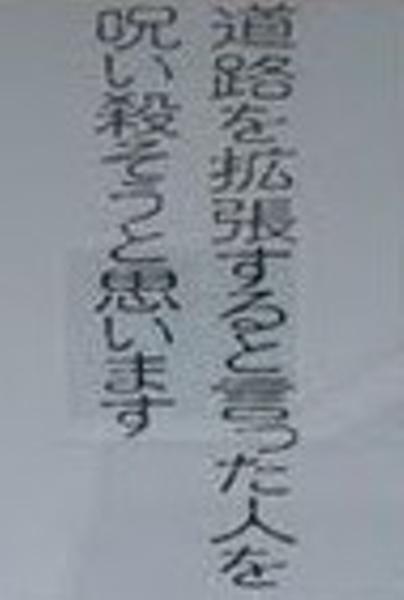 道路を拡張すると言った人を
呪い殺そうと思います